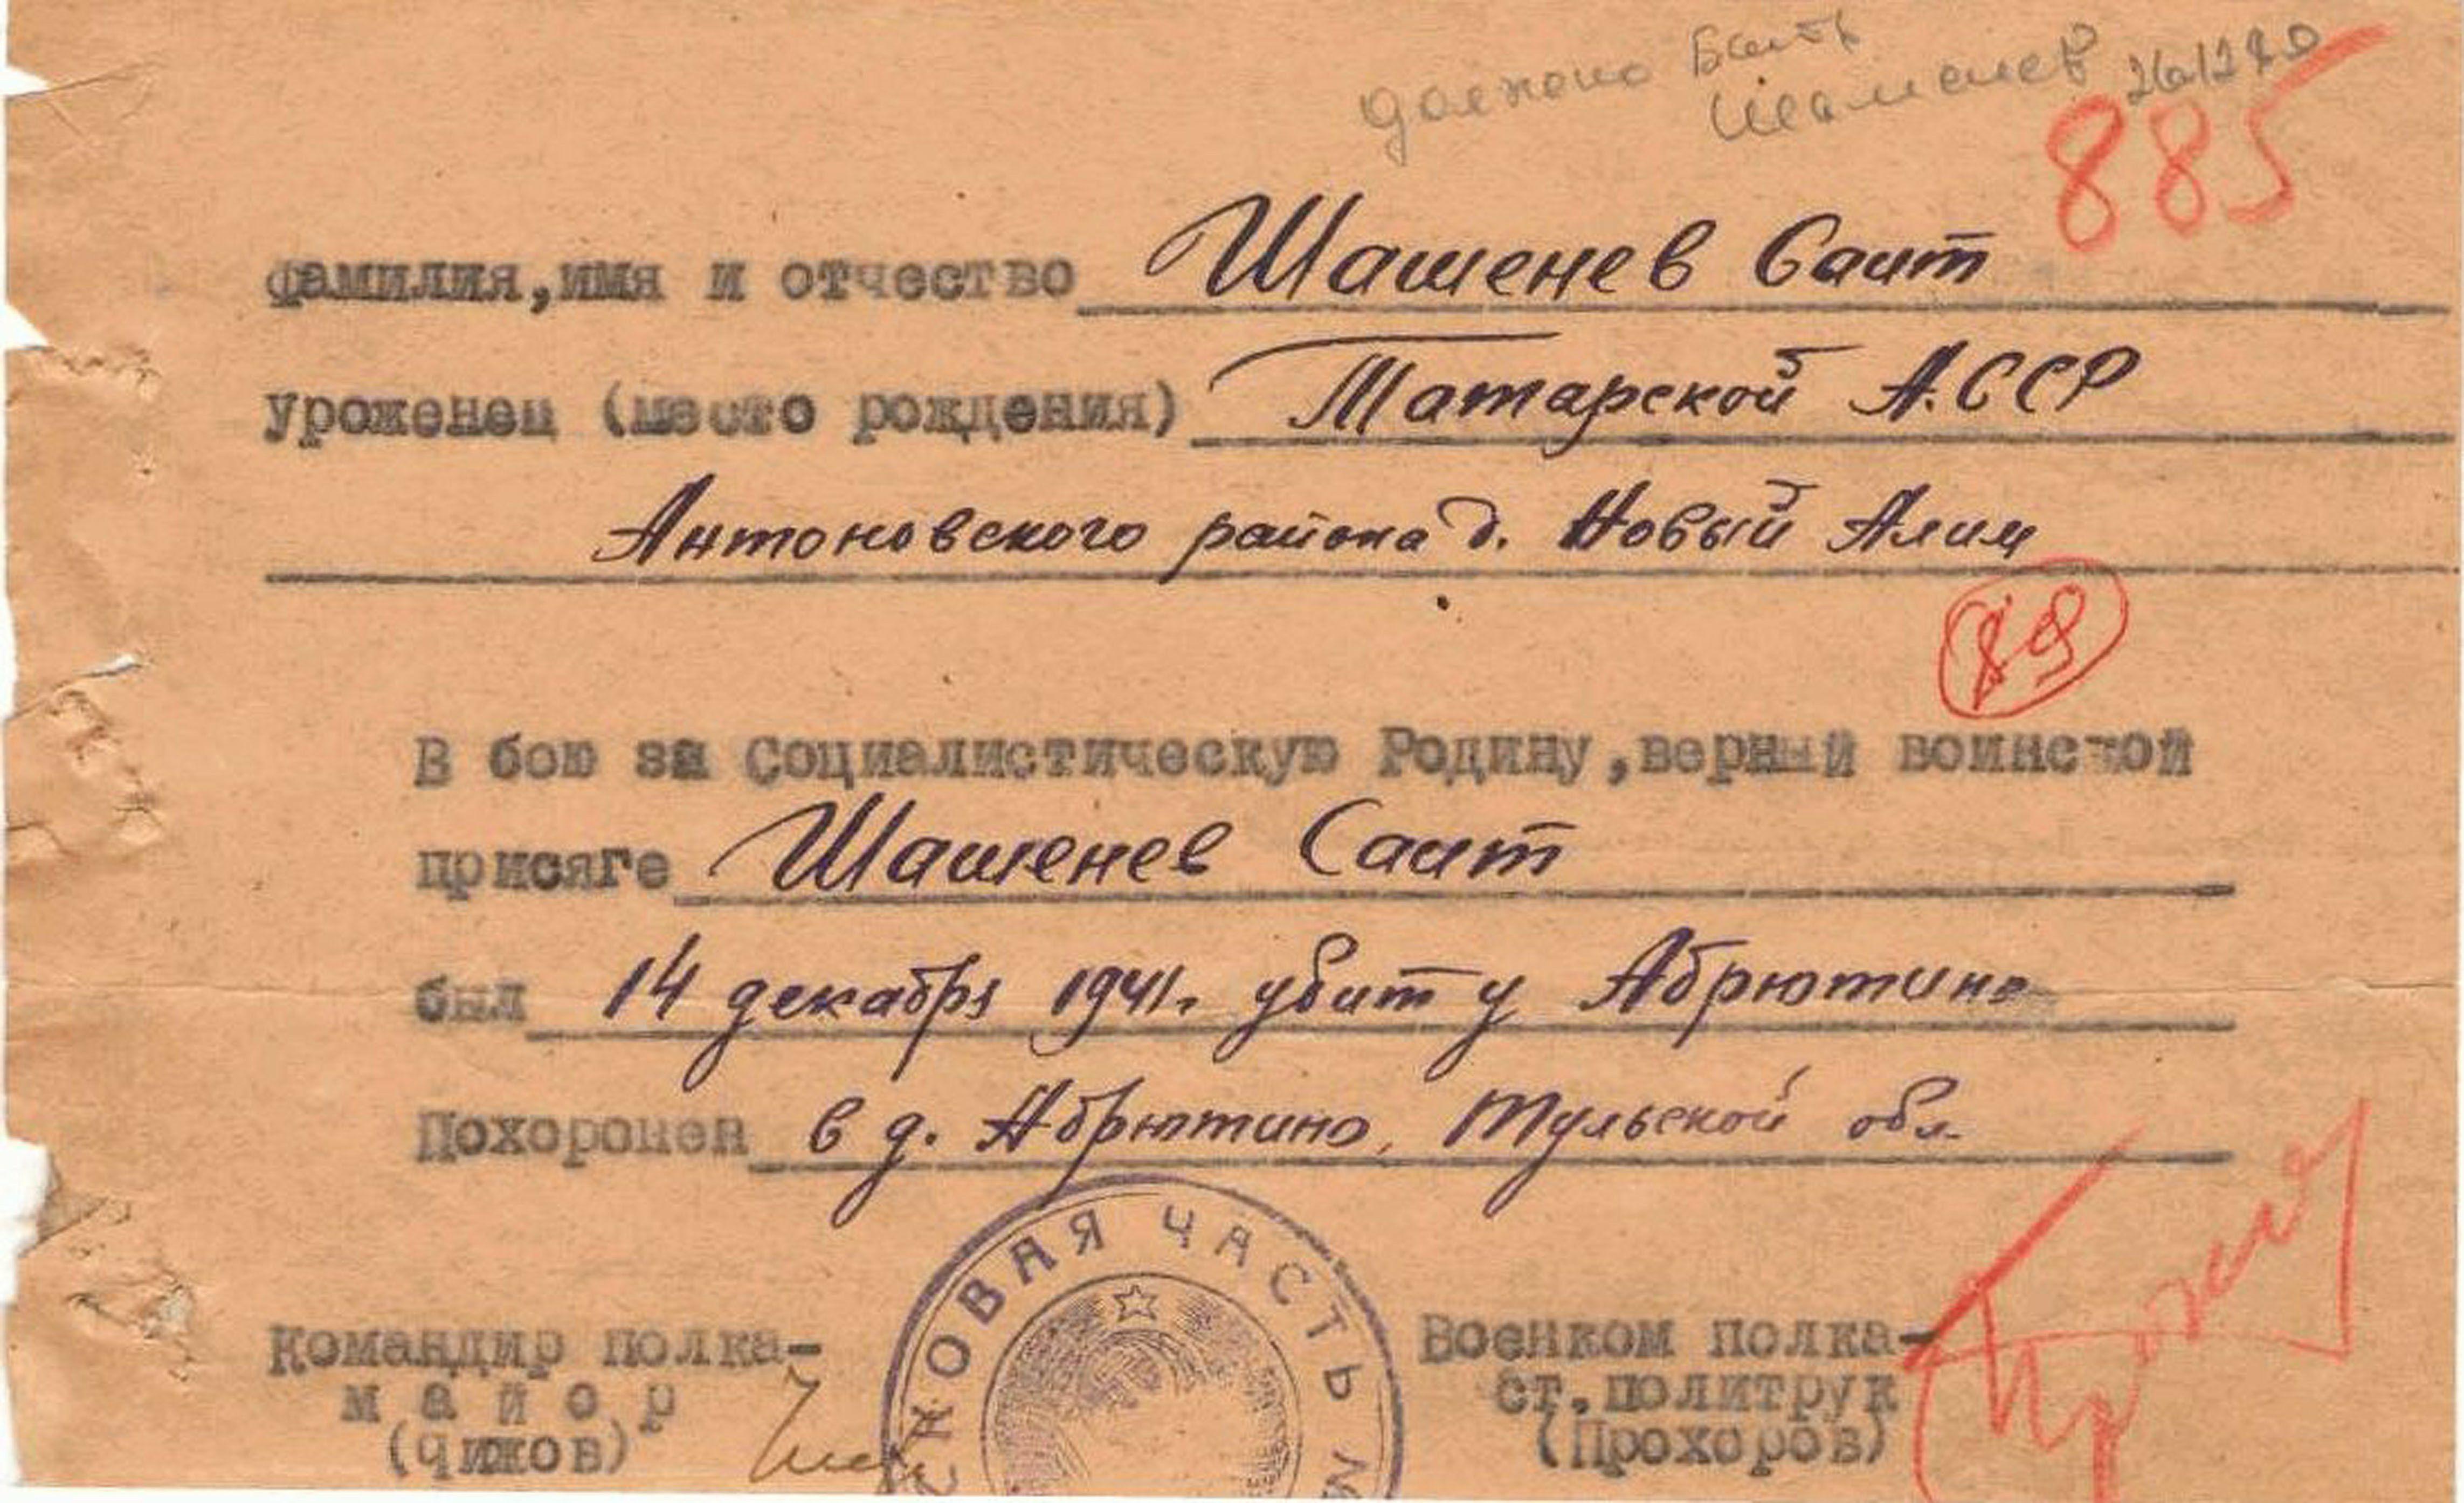 должно быть
Шаменев 261270
885
Фамилия,имя и отчество Шашенев Саит
Уроженец (место рождения) Татарской А.ССР
Антоновского района д. Новый Алим
89
В бою за Социалистическую Родину,верный воинской
присяге Шашенев Саит
был 14 декабря 1941г. убит у Абрютино
Похоронен в д. Абрютино, Тульской обл.
НОВАЯ ЧАСТЬ
Командир полка-
майор
(Чижов)
Военком полка-
ст.политрук
(Прохоров)